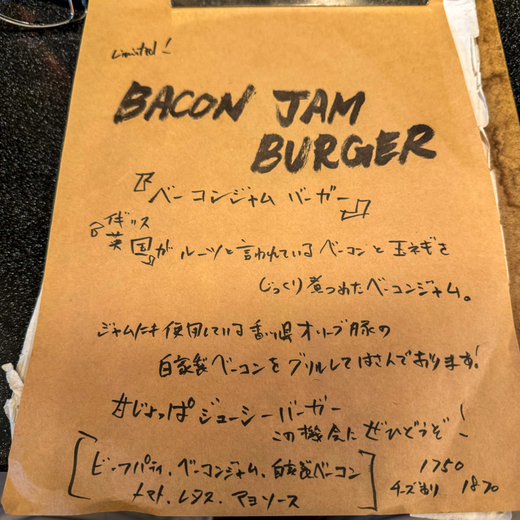 Limited!
BACON JAM
BURGER
『ベーコンジャム バーガー』
イギリス
「英国」が ルーツと言われているベーコンと玉ネギを
じっくり煮つめたベーコンジャム。
ジャムにも使用している香川県オリーブ豚の
自家製ベーコンをグリルしてはさんでおります!
甘じょっぱジューシーバーガー
この機会にぜひどうぞ!
[ビーフパティ、ベーコンジャム、自家製ベーコン
トマト、レタス、マヨソース]
1750
チーズ入り 1870